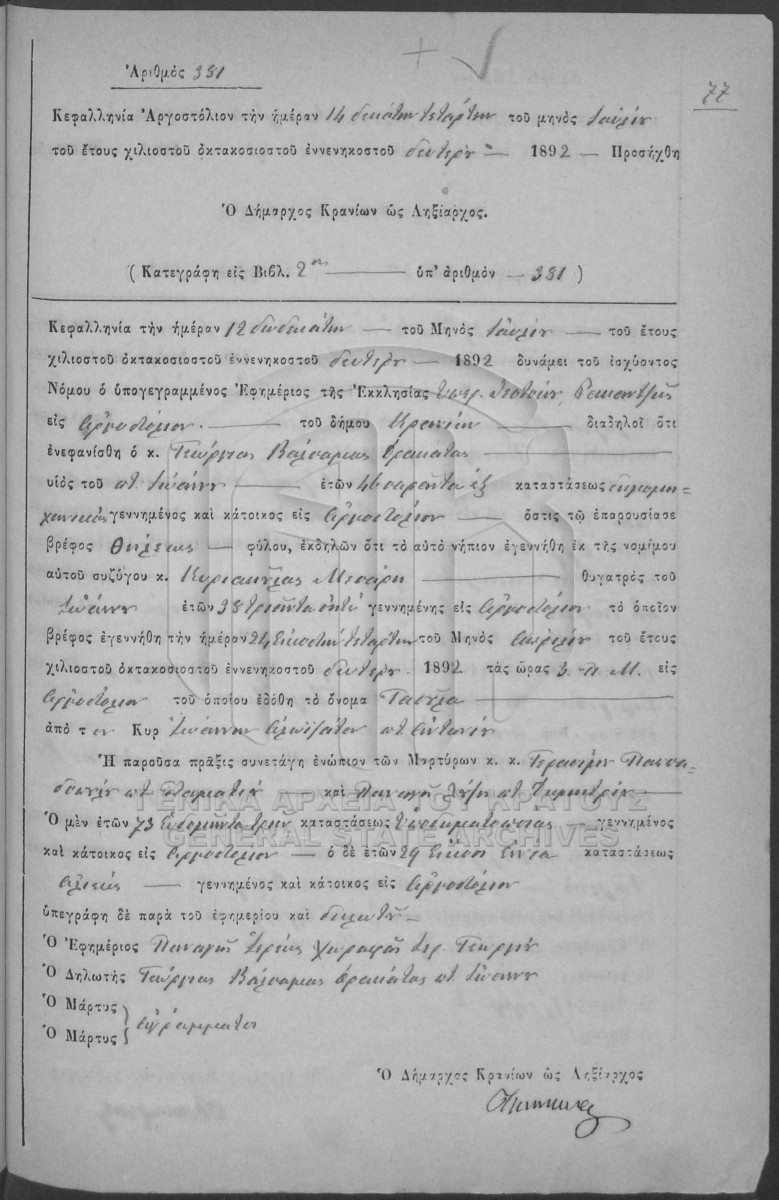 77
Ἀριθμὸς 381
Κεφαλληνία Ἀργοστόλιον τὴν ἡμέραν 14 δεκάτην τετάρτην τοῦ μηνὸς Ἰουλίου
τοῦ ἔτους χιλιοστοῦ ὀκτακοσιοστοῦ ἐννενηκοστοῦ δευτέρου 1892 — Προσήχθη
Ὁ Δήμαρχος Κρανίων ὡς Ληξίαρχος.
( Κατεγράφη εἰς Βιβλ. 2ον — ὑπ' ἀριθμὸν — 381 )
Κεφαλληνία τὴν ἡμέραν 12 δωδεκάτην — τοῦ Μηνὸς Ἰουλίου — τοῦ ἔτους
χιλιοστοῦ ὀκτακοσιοστοῦ ἐννενηκοστοῦ δευτέρου — 1892 δυνάμει τοῦ ἰσχύοντος
Νόμου ὁ ὑπογεγραμμένος Ἐφημέριος τῆς Ἐκκλησίας
εἰς Ἀργοστόλιον. — τοῦ δήμου Κρανίων — διαδηλοῖ ὅτι
ἐνεφανίσθη ὁ κ. Γεώργιος Βάλσαμος
υἱὸς τοῦ ποτ Ἰωάννου — ἐτῶν 46 σαράντα ἓξ καταστάσεως
γεννημένος καὶ κάτοικος εἰς Ἀργοστόλιον — ὅστις τῷ ἐπαρουσίασε
βρέφος θήλεως — φύλου, ἐκδηλῶν ὅτι τὸ αὐτὸ νήπιον ἐγεννήθη ἐκ τῆς νομίμου
αὐτοῦ συζύγου κ. Κυριακούλας — θυγατρὸς τοῦ
Ἰωάννου ἐτῶν 38 τριάντα ὀκτώ γεννημένης εἰς Ἀργοστόλιον τὸ ὁποῖον
βρέφος ἐγεννήθη τὴν ἡμέραν 24 εἰκοστὴν τετάρτην τοῦ Μηνὸς Ἀπριλίου τοῦ ἔτους
χιλιοστοῦ ὀκτακοσιοστοῦ ἐννενηκοστοῦ δευτέρου 1892 τὰς ὥρας 3 π. Μ. εἰς
Ἀργοστόλιον τοῦ ὁποίου ἐδόθη τὸ ὄνομα
ἀπὸ τον Κυρ Ἰωάννην ποτ Ἀντωνίου
Ἡ παροῦσα πρᾶξις συνετάγη ἐνώπιον τῶν Μαρτύρων κ. κ. Γερασίμου
ποτ Σταματίου — καὶ Παναγῆ ποτ Δημητρίου —
ΓΕΝΙΚΑ ΑΡΧΕΙΑ ΤΟΥ ΚΡΑΤΟΥΣ
Ὁ μὲν ἐτῶν 73 ἑβδομῆντα τριῶν καταστάσεως ὑποδηματοποιὸς — γεννημένος
GENERAL STATE ARCHIVES
καὶ κάτοικος εἰς Ἀργοστόλιον — ὁ δὲ ἐτῶν 29 εἴκοσι ἐννέα καταστάσεως
ἁλιεύς — γεννημένος καὶ κάτοικος εἰς Ἀργοστόλιον
ὑπεγράφη δὲ παρὰ τοῦ ἐφημερίου καὶ δηλωτοῦ —
Ὁ Ἐφημέριος Παναγῆς Ἱερεὺς Γεωργίου
Ὁ Δηλωτής Γεώργιος Βάλσαμος ποτ Ἰωάννου
Ὁ Μάρτυς
Ὁ Μάρτυς } ἀγράμματοι
Ὁ Δήμαρχος Κρανίων ὡς Ληξίαρχος